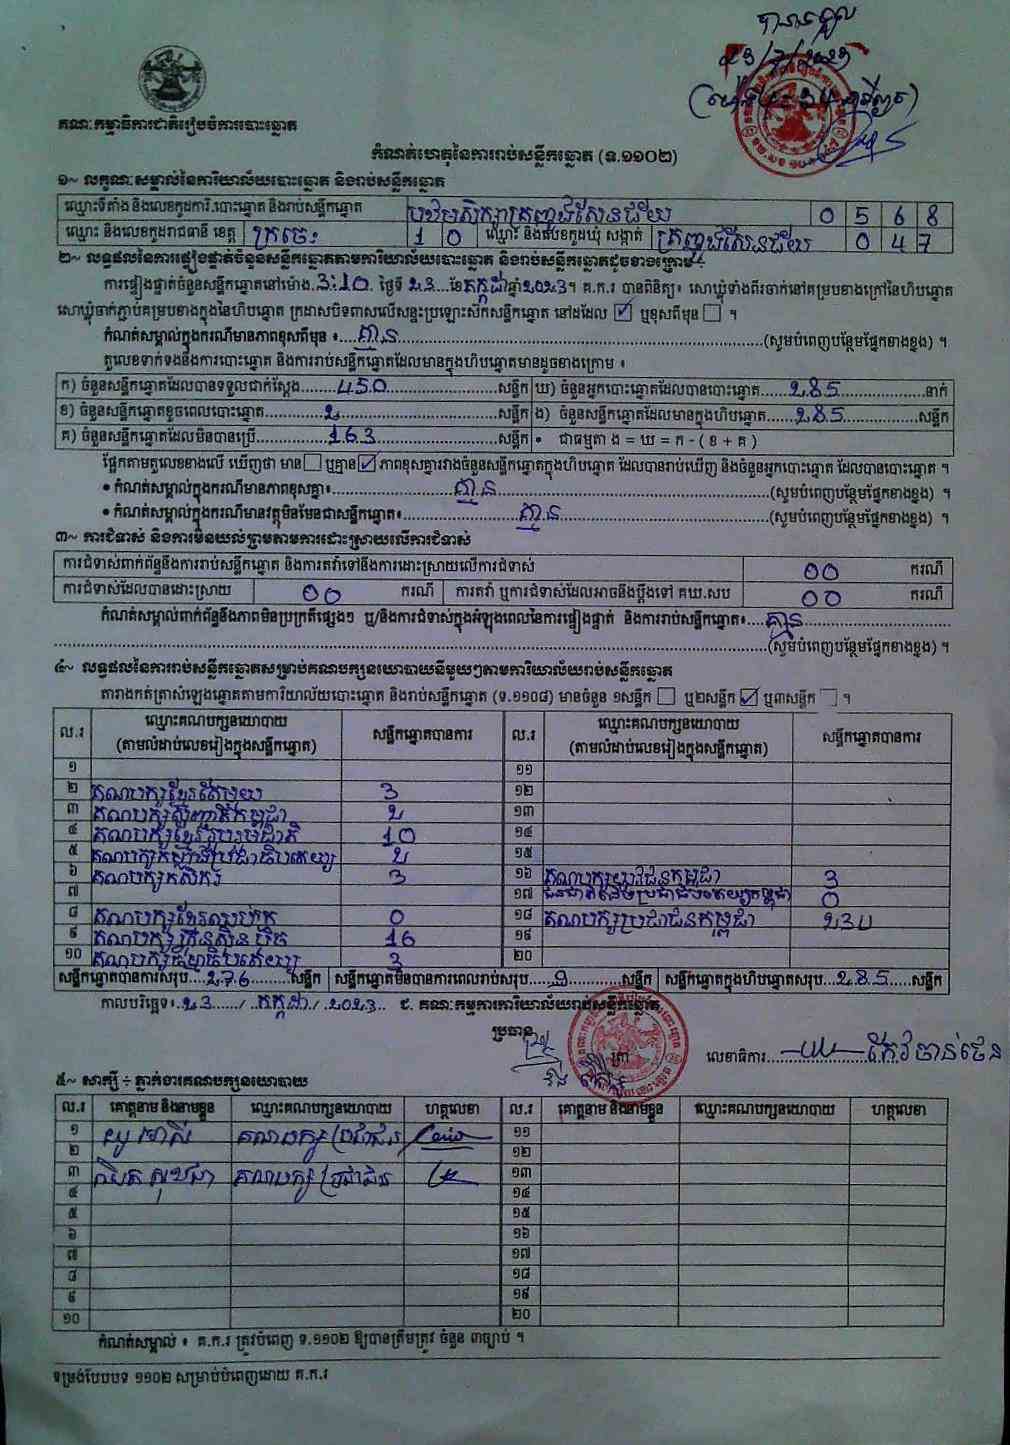 បានទទួល
២៣/7/២០២៣
គណៈកម្មាធិការជាតិរៀបចំការបោះឆ្នោត
កំណត់ហេតុនៃការរាប់សន្លឹកឆ្នោត (ទ.១១០២)
១~ លក្ខណៈសម្គាល់នៃការិយាល័យបោះឆ្នោត និងរាប់សន្លឹកឆ្នោត
ឈ្មោះទីតាំង និងលេខកូដការិ.បោះឆ្នោត និងរាប់សន្លឹកឆ្នោត បឋមសិក្សាត្រញូងសែនជ័យ 0 5 6 8
ឈ្មោះ និងលេខកូដរាជធានី ខេត្ត ក្រចេះ 1 0 ឈ្មោះ និងលេខកូដឃុំ សង្កាត់ សែនជ័យ 0 4 7
២~ លទ្ធផលនៃការផ្ទៀងផ្ទាត់ចំនួនសន្លឹកឆ្នោតតាមការិយាល័យបោះឆ្នោត និងរាប់សន្លឹកឆ្នោតដូចខាងក្រោម ÷
ការផ្ទៀងផ្ទាត់ចំនួនសន្លឹកឆ្នោតនៅម៉ោង.3:10. ថ្ងៃទី ២៣...ខែកក្កដាឆ្នាំ2023។ គ.ក.រ បានពិនិត្យ៖ សោឃ្លុំទាំងពីរចាក់នៅគម្របខាងក្រៅនៃហិបឆ្នោត
សោឃ្លុំចាក់ភ្ជាប់គម្របខាងក្នុងនៃហិបឆ្នោត ក្រដាសបិទពាសលើសន្ទះប្រឡោះសឹកសន្លឹកឆ្នោត នៅដដែល ☑ ឬខុសពីមុន ☐ ។
កំណត់សម្គាល់ក្នុងករណីមានភាពខុសពីមុន ៖....គ្មាន....(សូមបំពេញបន្ថែមផ្នែកខាងខ្នង) ។
តួលេខទាក់ទងនឹងការបោះឆ្នោត និងការរាប់សន្លឹកឆ្នោតដែលមានក្នុងហិបឆ្នោតមានដូចខាងក្រោម ៖
ក) ចំនួនសន្លឹកឆ្នោតដែលបានទទួលជាក់ស្តែង.......450.......សន្លឹក ឃ) ចំនួនអ្នកបោះឆ្នោតដែលបានបោះឆ្នោត......285......នាក់
ខ) ចំនួនសន្លឹកឆ្នោតខូចពេលបោះឆ្នោត.......2.......សន្លឹក ង) ចំនួនសន្លឹកឆ្នោតដែលមានក្នុងហិបឆ្នោត......285......សន្លឹក
គ) ចំនួនសន្លឹកឆ្នោតដែលមិនបានប្រើ.......163.......សន្លឹក • ជាធម្មតា ង = ឃ = ក - ( ខ + គ )
ផ្អែកតាមតួលេខខាងលើ ឃើញថា មាន☐ ឬគ្មាន☑ ភាពខុសគ្នារវាងចំនួនសន្លឹកឆ្នោតក្នុងហិបឆ្នោត ដែលបានរាប់ឃើញ និងចំនួនអ្នកបោះឆ្នោត ដែលបានបោះឆ្នោត ។
• កំណត់សម្គាល់ក្នុងករណីមានភាពខុសគ្នា៖.......គ្មាន.......(សូមបំពេញបន្ថែមផ្នែកខាងខ្នង) ។
• កំណត់សម្គាល់ក្នុងករណីមានវត្ថុមិនមែនជាសន្លឹកឆ្នោត៖.......គ្មាន.......(សូមបំពេញបន្ថែមផ្នែកខាងខ្នង) ។
៣~ ការជំទាស់ និងការមិនយល់ព្រមតាមការដោះស្រាយលើការជំទាស់
ការជំទាស់ពាក់ព័ន្ធនឹងការរាប់សន្លឹកឆ្នោត និងការតវ៉ាទៅនឹងការដោះស្រាយលើការជំទាស់ 00 ករណី
ការជំទាស់ដែលបានដោះស្រាយ 00 ករណី ការតវ៉ា ឬការជំទាស់ដែលអាចនឹងប្តឹងទៅ គឃ.សប 00 ករណី
កំណត់សម្គាល់ពាក់ព័ន្ធនឹងភាពមិនប្រក្រតីផ្សេងៗ ឬ/និងការជំទាស់ក្នុងអំឡុងពេលនៃការផ្ទៀងផ្ទាត់ និងការរាប់សន្លឹកឆ្នោត៖....គ្មាន....
(សូមបំពេញបន្ថែមផ្នែកខាងខ្នង) ។
៤~ លទ្ធផលនៃការរាប់សន្លឹកឆ្នោតសម្រាប់គណបក្សនយោបាយនីមួយៗតាមការិយាល័យរាប់សន្លឹកឆ្នោត
តារាងកត់ត្រាសំឡេងឆ្នោតតាមការិយាល័យបោះឆ្នោត និងរាប់សន្លឹកឆ្នោត (ទ.១១០៨) មានចំនួន ១សន្លឹក ☐ ឬ២សន្លឹក ☑ ឬ៣សន្លឹក ☐ ។
ល.រ ឈ្មោះគណបក្សនយោបាយ (តាមលំដាប់លេខរៀងក្នុងសន្លឹកឆ្នោត) សន្លឹកឆ្នោតបានការ ល.រ ឈ្មោះគណបក្សនយោបាយ (តាមលំដាប់លេខរៀងក្នុងសន្លឹកឆ្នោត) សន្លឹកឆ្នោតបានការ
១ ១១
២ គណបក្សខ្មែរតែមួយ 3 ១២
៣ គណបក្ស កម្ពុជា 2 ១៣
៤ គណបក្សខ្មែររួបរួមជាតិ 10 ១៤
៥ គណបក្សកម្លាំងប្រជាធិបតេយ្យ 2 ១៥
៦ គណបក្សកសិករ 3 ១៦ គណបក្សយុវជនកម្ពុជា 3
៧ ១៧ ជនជាតិដើមប្រជាធិបតេយ្យកម្ពុជា 0
៨ គណបក្សខ្មែរឈប់ក្រ 0 ១៨ គណបក្សប្រជាជនកម្ពុជា 232
៩ គណបក្សហ្វ៊ុនស៊ិនប៉ិច 16 ១៩
១០ គណបក្សធម្មាធិបតេយ្យ 3 ២០
សន្លឹកឆ្នោតបានការសរុប..276..សន្លឹក សន្លឹកឆ្នោតមិនបានការពេលរាប់សរុប..9..សន្លឹក សន្លឹកឆ្នោតក្នុងហិបឆ្នោតសរុប..285..សន្លឹក
កាលបរិច្ឆេទ៖.23..../.កក្កដា./.2023.. ជ. គណៈកម្មការការិយាល័យរាប់សន្លឹកឆ្នោត
ប្រធាន
ត្រា លេខាធិការ
៥~ សាក្សី ÷ ភ្នាក់ងារគណបក្សនយោបាយ
ល.រ គោត្តនាម និងនាមខ្លួន ឈ្មោះគណបក្សនយោបាយ ហត្ថលេខា ល.រ គោត្តនាម និងនាមខ្លួន ឈ្មោះគណបក្សនយោបាយ ហត្ថលេខា
១ គណបក្ស ប្រជាជន ១១
២ ១២
៣ គណបក្ស ប្រជាជន ១៣
៤ ១៤
៥ ១៥
៦ ១៦
៧ ១៧
៨ ១៨
៩ ១៩
១០ ២០
កំណត់សម្គាល់ ៖ គ.ក.រ ត្រូវបំពេញ ទ.១១០២ ឱ្យបានត្រឹមត្រូវ ចំនួន ៣ច្បាប់ ។
ទម្រង់បែបបទ ១១០២ សម្រាប់បំពេញដោយ គ.ក.រ